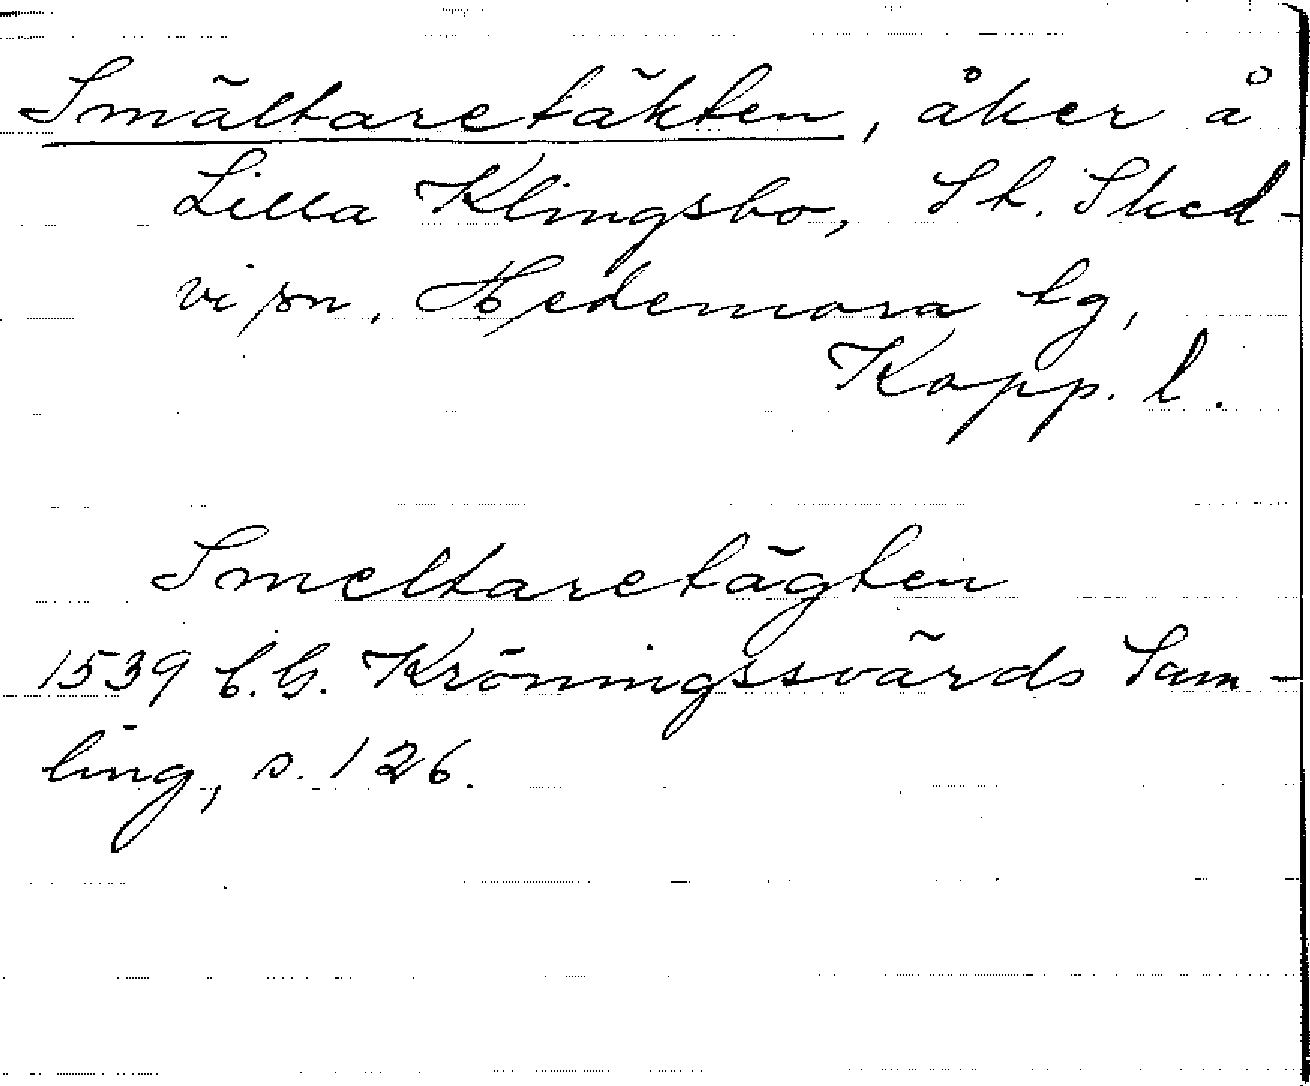 Smältaretäkten, åker å
Lilla Klingsbo, St. Sked-
vi sn, Hedemora tg,
Kopp. l.
Smeltaretägten
1539 C.G. Kröningssvärds Sam-
ling, s. 126.